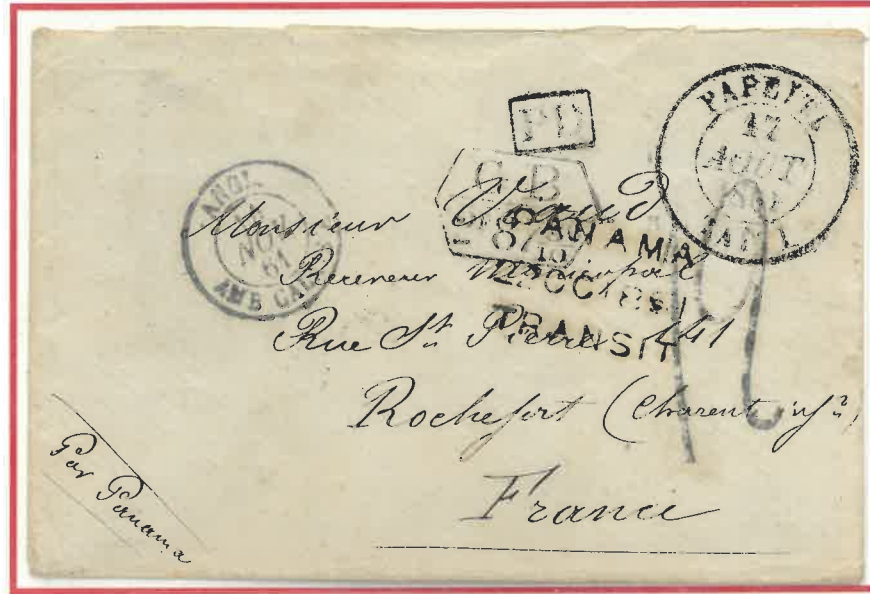 PD
PAPEITE
17
AOUT
TAITI
GB
ANGL.
NOV.
61
AMB. CALAIS
PANAMA
TRANSIT
Monsieur
Receveur Municipal
Rue St. Pierre 141
Rochefort (Charente infre)
France
Par Panama